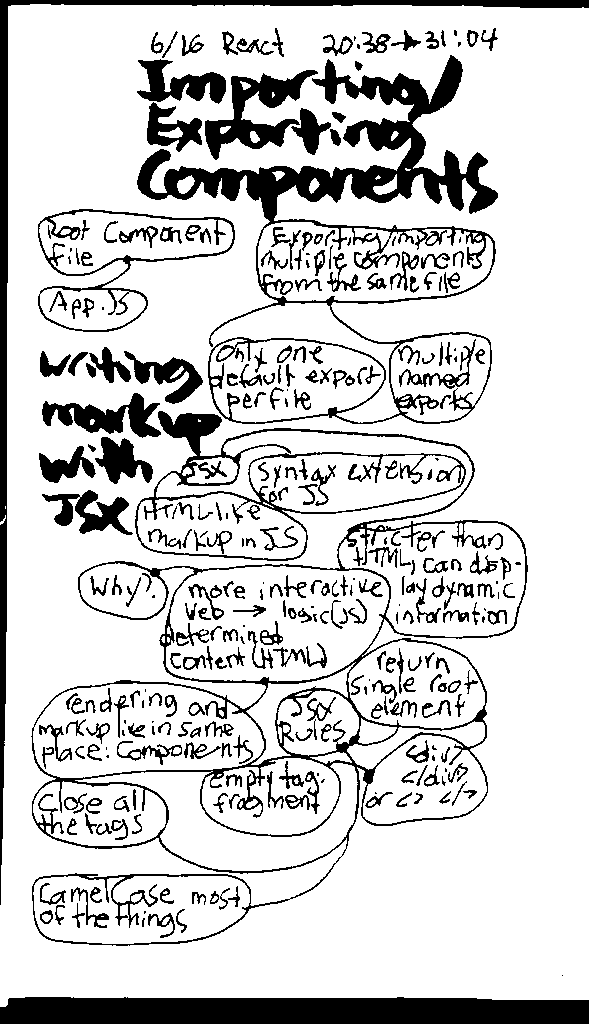 6/16 React 20:38→31:04
Importing/
Exporting
Components
Root Component
file
App.JS
Exporting/importing
multiple components
from the same file
only one
default export
per file
multiple
named
exports
writing
markup
with
JSX
JSX
syntax extension
for JS
HTML-like
markup in JS
stricter than
HTML, can disp-
lay dynamic
information
Why?
more interactive
Web → logic(JS)
determined
content (HTML)
rendering and
markup live in same
place: Components
JSX
Rules
return
single root
element
<div>
</div>
or <> </>
empty tag:
fragment
close all
the tags
CamelCase most
of the things